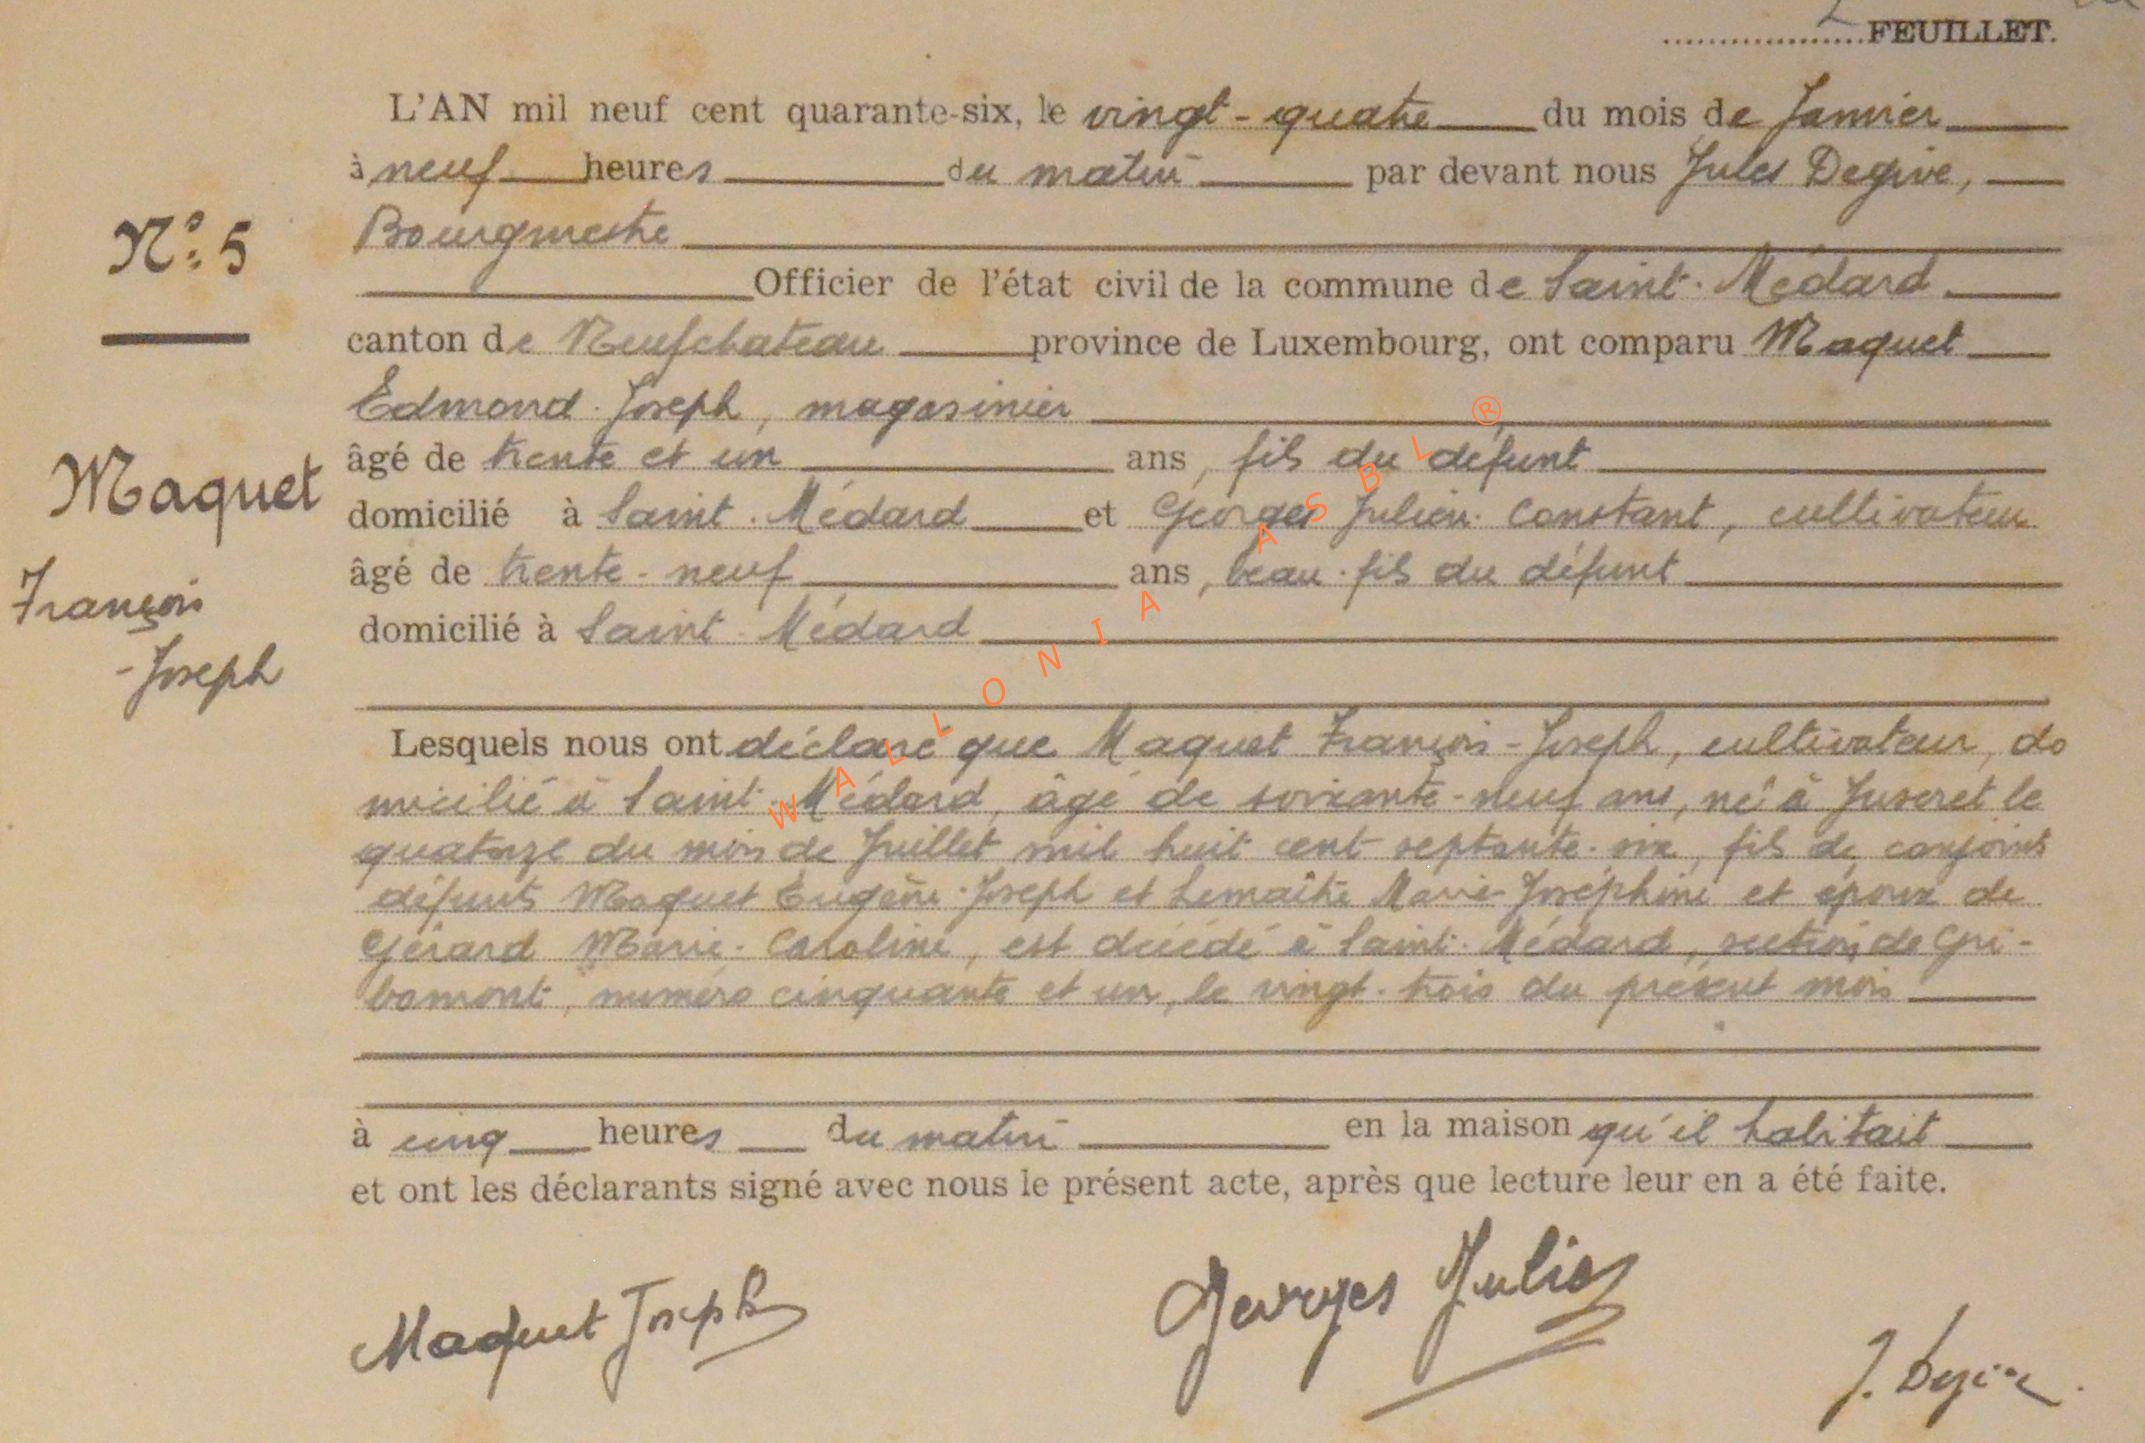 2 FEUILLET.
L'AN mil neuf cent quarante-six, le vingt-quatre du mois de Janvier
à neuf heures du matin par devant nous Jules Degive,
Bourgmestre
N° 5
Officier de l'état civil de la commune de Saint-Médard
canton de Neufchateau province de Luxembourg, ont comparu Maquet
Edmond-Joseph, magasinier
âgé de trente et un ans, fils du défunt
Maquet
domicilié à Saint-Médard et Georges Julien-Constant, cultivateur
âgé de trente-neuf ans, beau-fils du défunt
François
domicilié à Saint-Médard
-Joseph
Lesquels nous ont déclaré que Maquet François-Joseph, cultivateur, do
micilié à Saint-Médard, âgé de soixante-neuf ans, né à Juseret le
quatorze du mois de Juillet mil huit cent septante-six, fils de conjoints
défunts Maquet Eugène-Joseph et Lemaître Marie-Joséphine et époux de
Gérard Marie-Caroline, est décédé à Saint-Médard, section de Gri-
bomont, numéro cinquante et un, le vingt-trois du présent mois
à cinq heures du matin en la maison qu'il habitait
et ont les déclarants signé avec nous le présent acte, après que lecture leur en a été faite.
Maquet Joseph
Georges Julien
J. Degive
WALLONIA ASBL ®